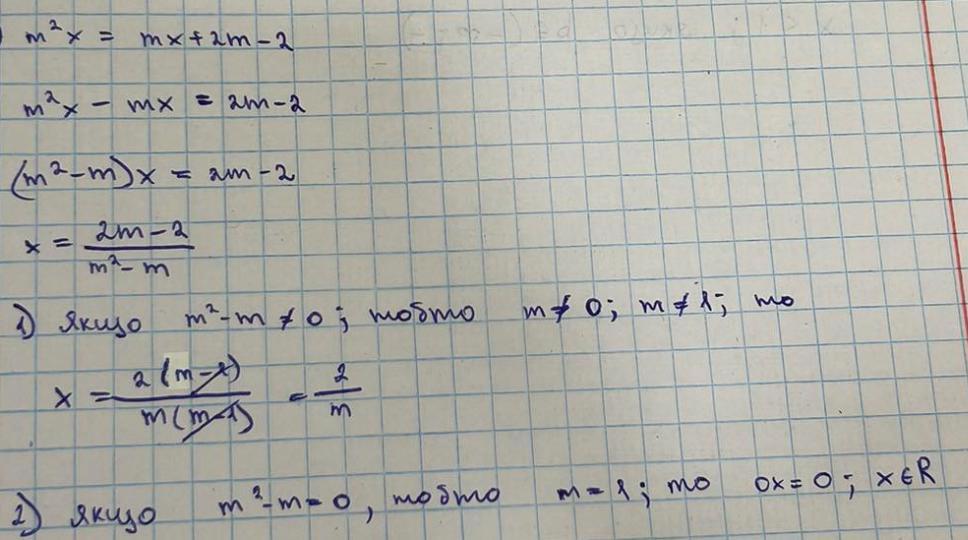 m²x = mx+2m-2
m²x - mx = 2m-2
(m²-m)x = 2m-2
x = (2m-2)/(m²-m)
1) якщо m²-m ≠ 0; тобто m ≠ 0; m ≠ 1; то
x = 2(m-1)/m(m-1) = 2/m
2) якщо m²-m=0, тобто m=1; то 0x=0; x∈R